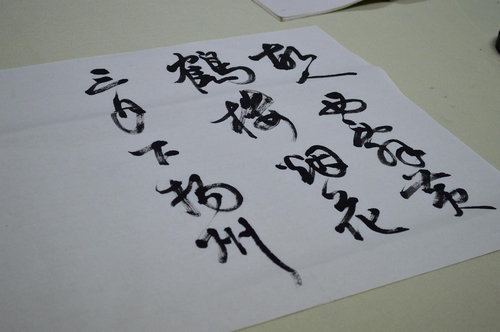 故人西辞黄
鹤楼烟花
三月下扬州